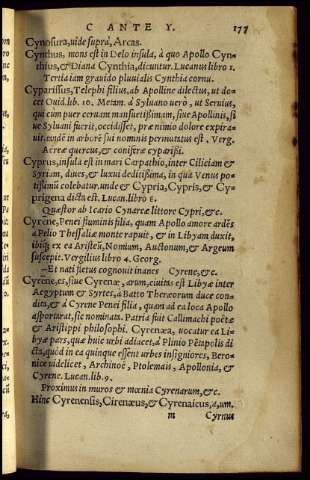 C A N T E Y. 177
Cynosura, uide suprà, Arcas.
Cynthus, mons est in Delo insula, à quo Apollo Cyn-
thius, & Diana Cynthia, dicuntur. Lucanus libro 1.
Tertia iam grauido pluuialis Cynthia cornu.
Cyparissus, Telephi filius, ab Apolline dilectus, ut do-
cet Ouid. lib. 10. Metam. à Syluano uerò, ut Seruius,
qui cum puer ceruam mansuetissimam, siue Apollinis, si
ue Syluani fuerit, occidisset, præ nimio dolore expira-
uit. unde in arborẽ sui nominis permutatus est. Verg.
Aereæ quercus, & coniferæ cyparissi.
Cyprus, insula est in mari Carpathio, inter Ciliciam &
Syriam, diues, & luxui deditissima, in qua Venus po-
tissimũ colebatur. unde & Cypria, Cypris, & Cy-
prigena dicta est. Lucan. libro 8.
Quæstor ab Icario Cynareæ littore Cypri, &c.
Cyrene, Penei fluminis filia, quam Apollo amore ardẽs
à Pelio Thessaliæ monte rapuit, & in Libyam duxit,
ibiq; ex ea Aristeũ, Nomium, Auctonum, & Argeum
suscepit. Vergilius libro 4. Georg.
Et nati fletus cognouit inanes Cyrene, &c.
Cyrene, es, siue Cyrenæ, arum, ciuitas est Libyæ inter
Aegyptum & Syrtes, à Batto Theræorum duce con-
dita, & à Cyrene Penei filia, quam ad ea loca Apollo
asportarat, sic nominata. Patria fuit Callimachi poëtæ
& Aristippi philosophi. Cyrenæa, uocatur ea Li-
byæ pars, quæ huic urbi adiacet, à Plinio Pẽtapolis di
cta, quòd in ea quinque essent urbes insigniores, Bero-
nice uidelicet, Archinoë, Ptolemais, Apollonia, &
Cyrene. Lucan. lib. 9.
Proximus in muros & mœnia Cyrenarum, &c.
Hinc Cyrenensis, Cirenæus, & Cyrenaicus, a, um.
m Cyrnus